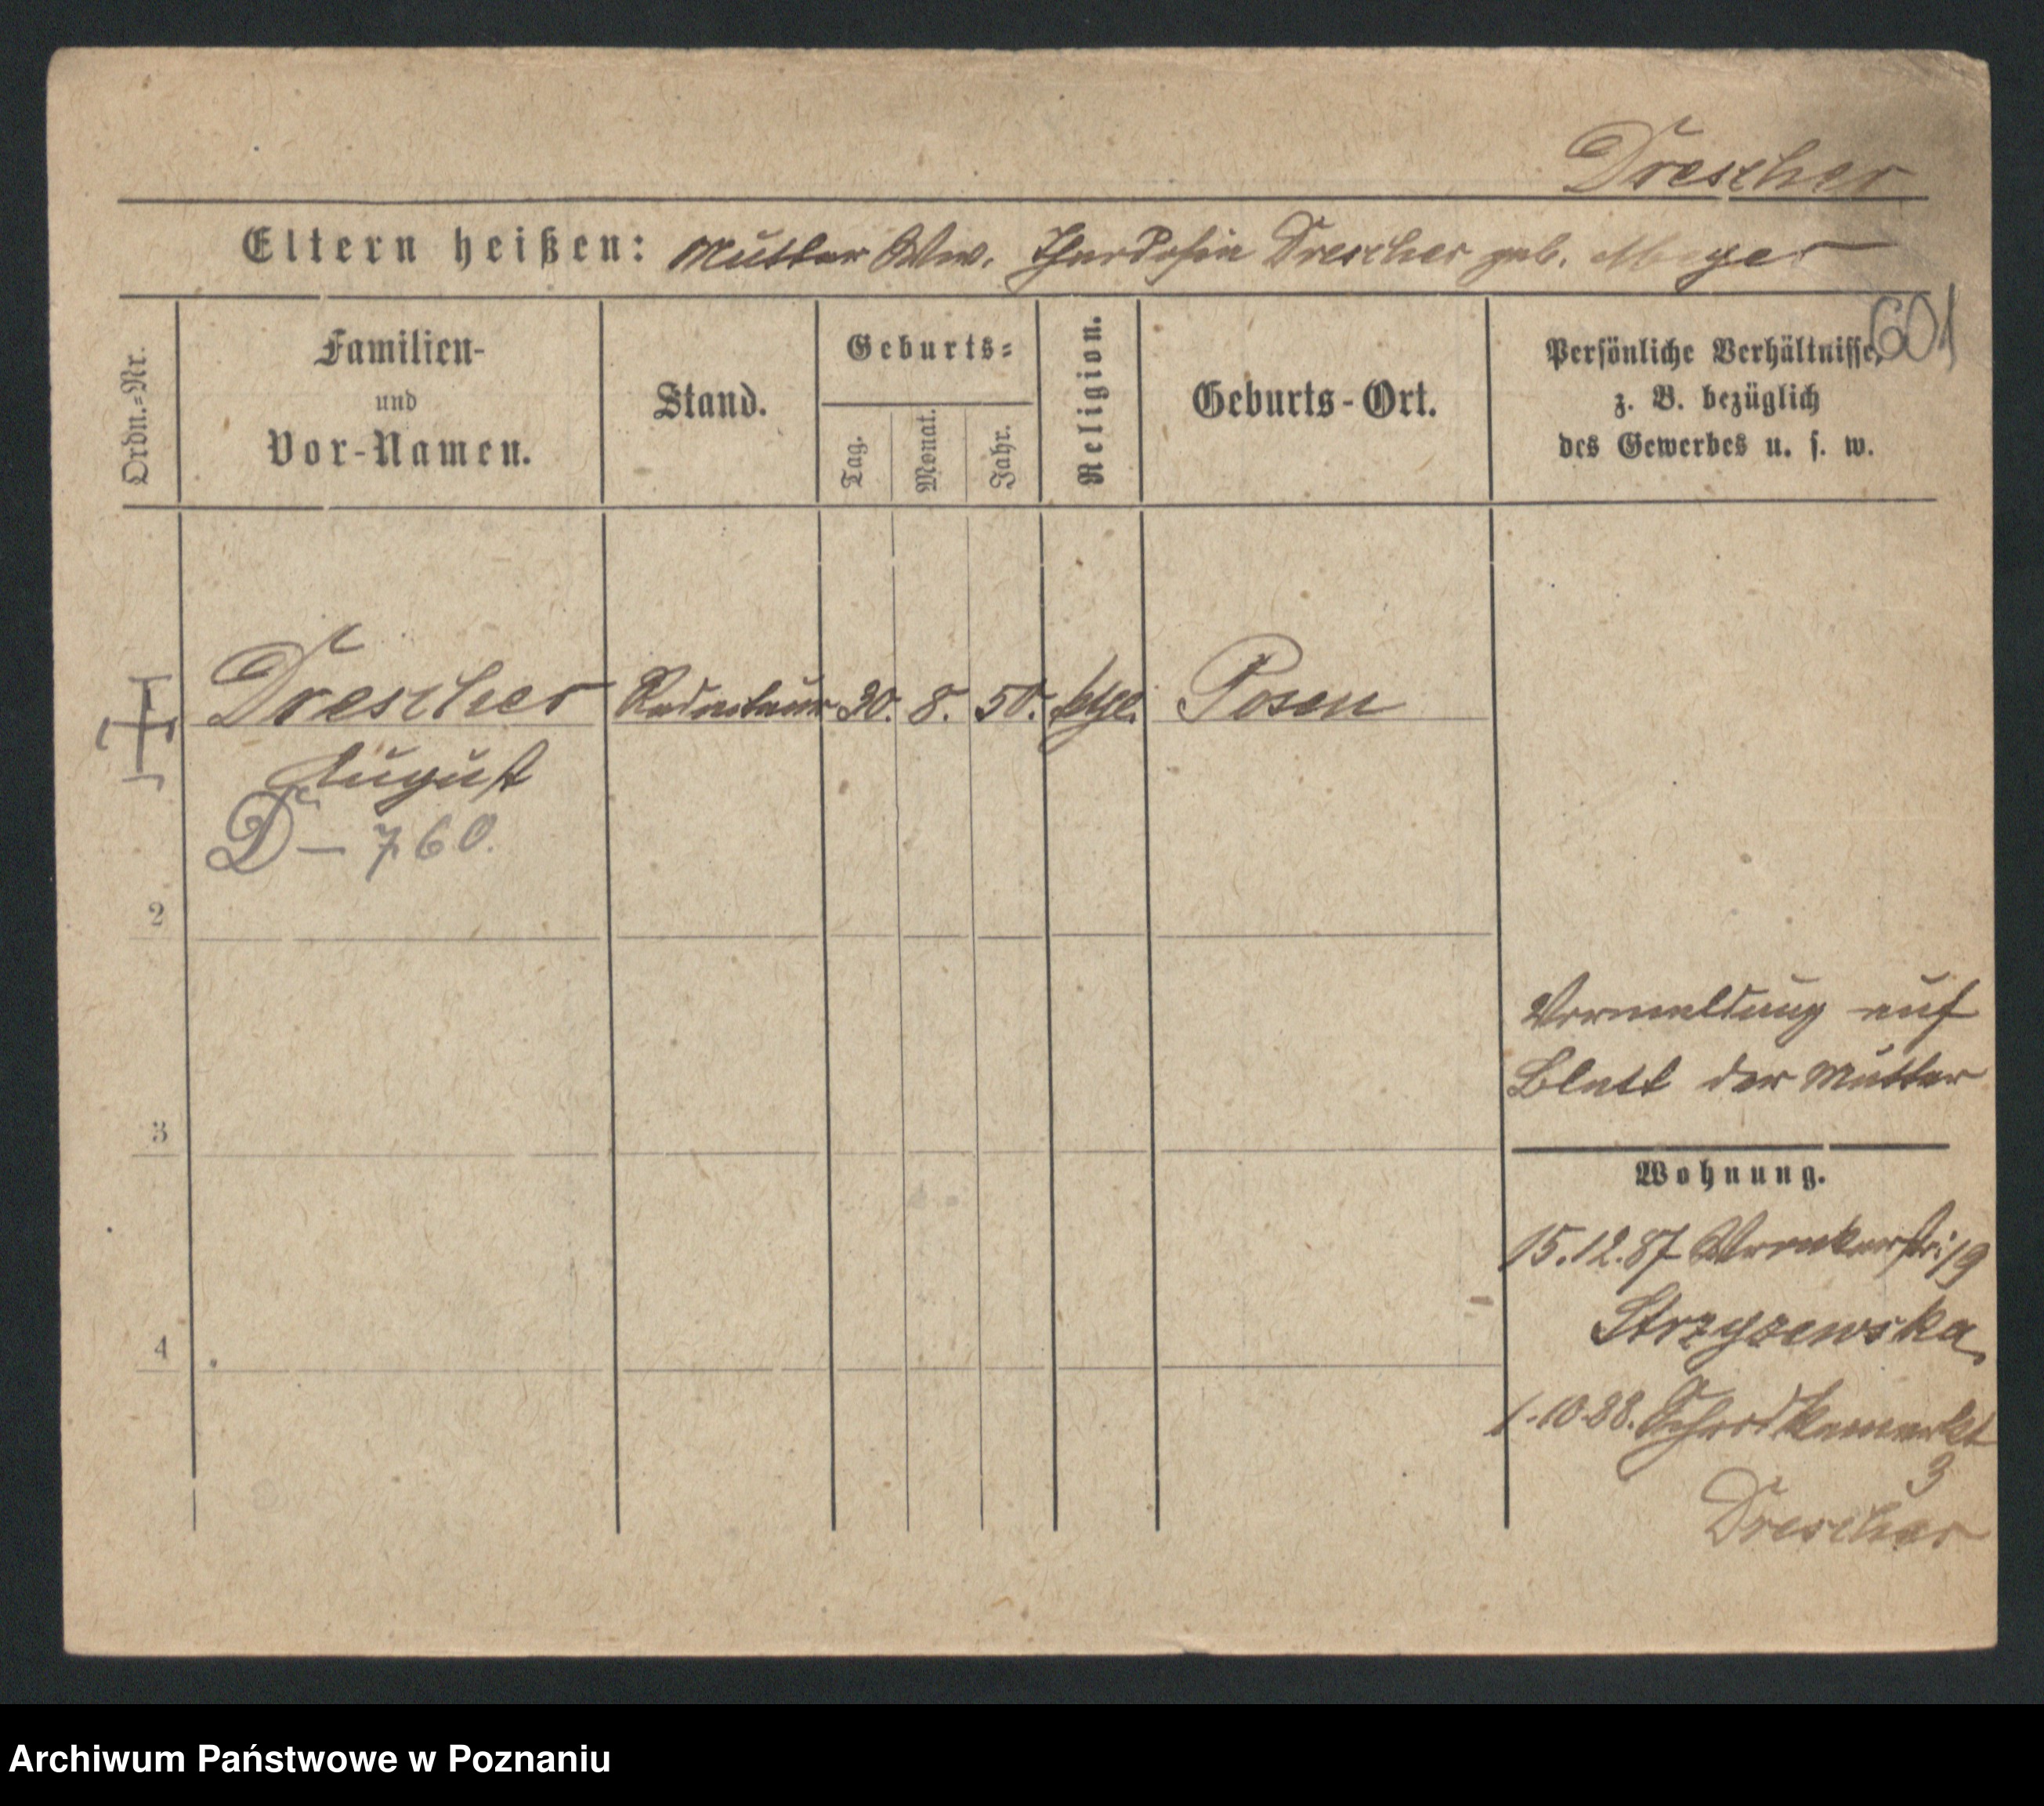 Drescher
Eltern heißen: Mutter Wwe. Drescher geb. Meyer
601
Ordn.-Nr.
Familien-
und
Vor-Namen.
Stand.
Geburts-
Tag.
Monat.
Jahr.
Religion.
Geburts-Ort.
Persönliche Verhältnisse,
z. B. bezüglich
des Gewerbes u. s. w.
1 Drescher Redacteur 30. 8. 50. Posen
August
D - 760.
2
3
4
Vormeldung auf
Blatt der Mutter
Wohnung.
15.12.87 Wronkerstr. 19
Strzyzewska
1.10.88. Schrodkamarkt
3
Drescher
Archiwum Państwowe w Poznaniu